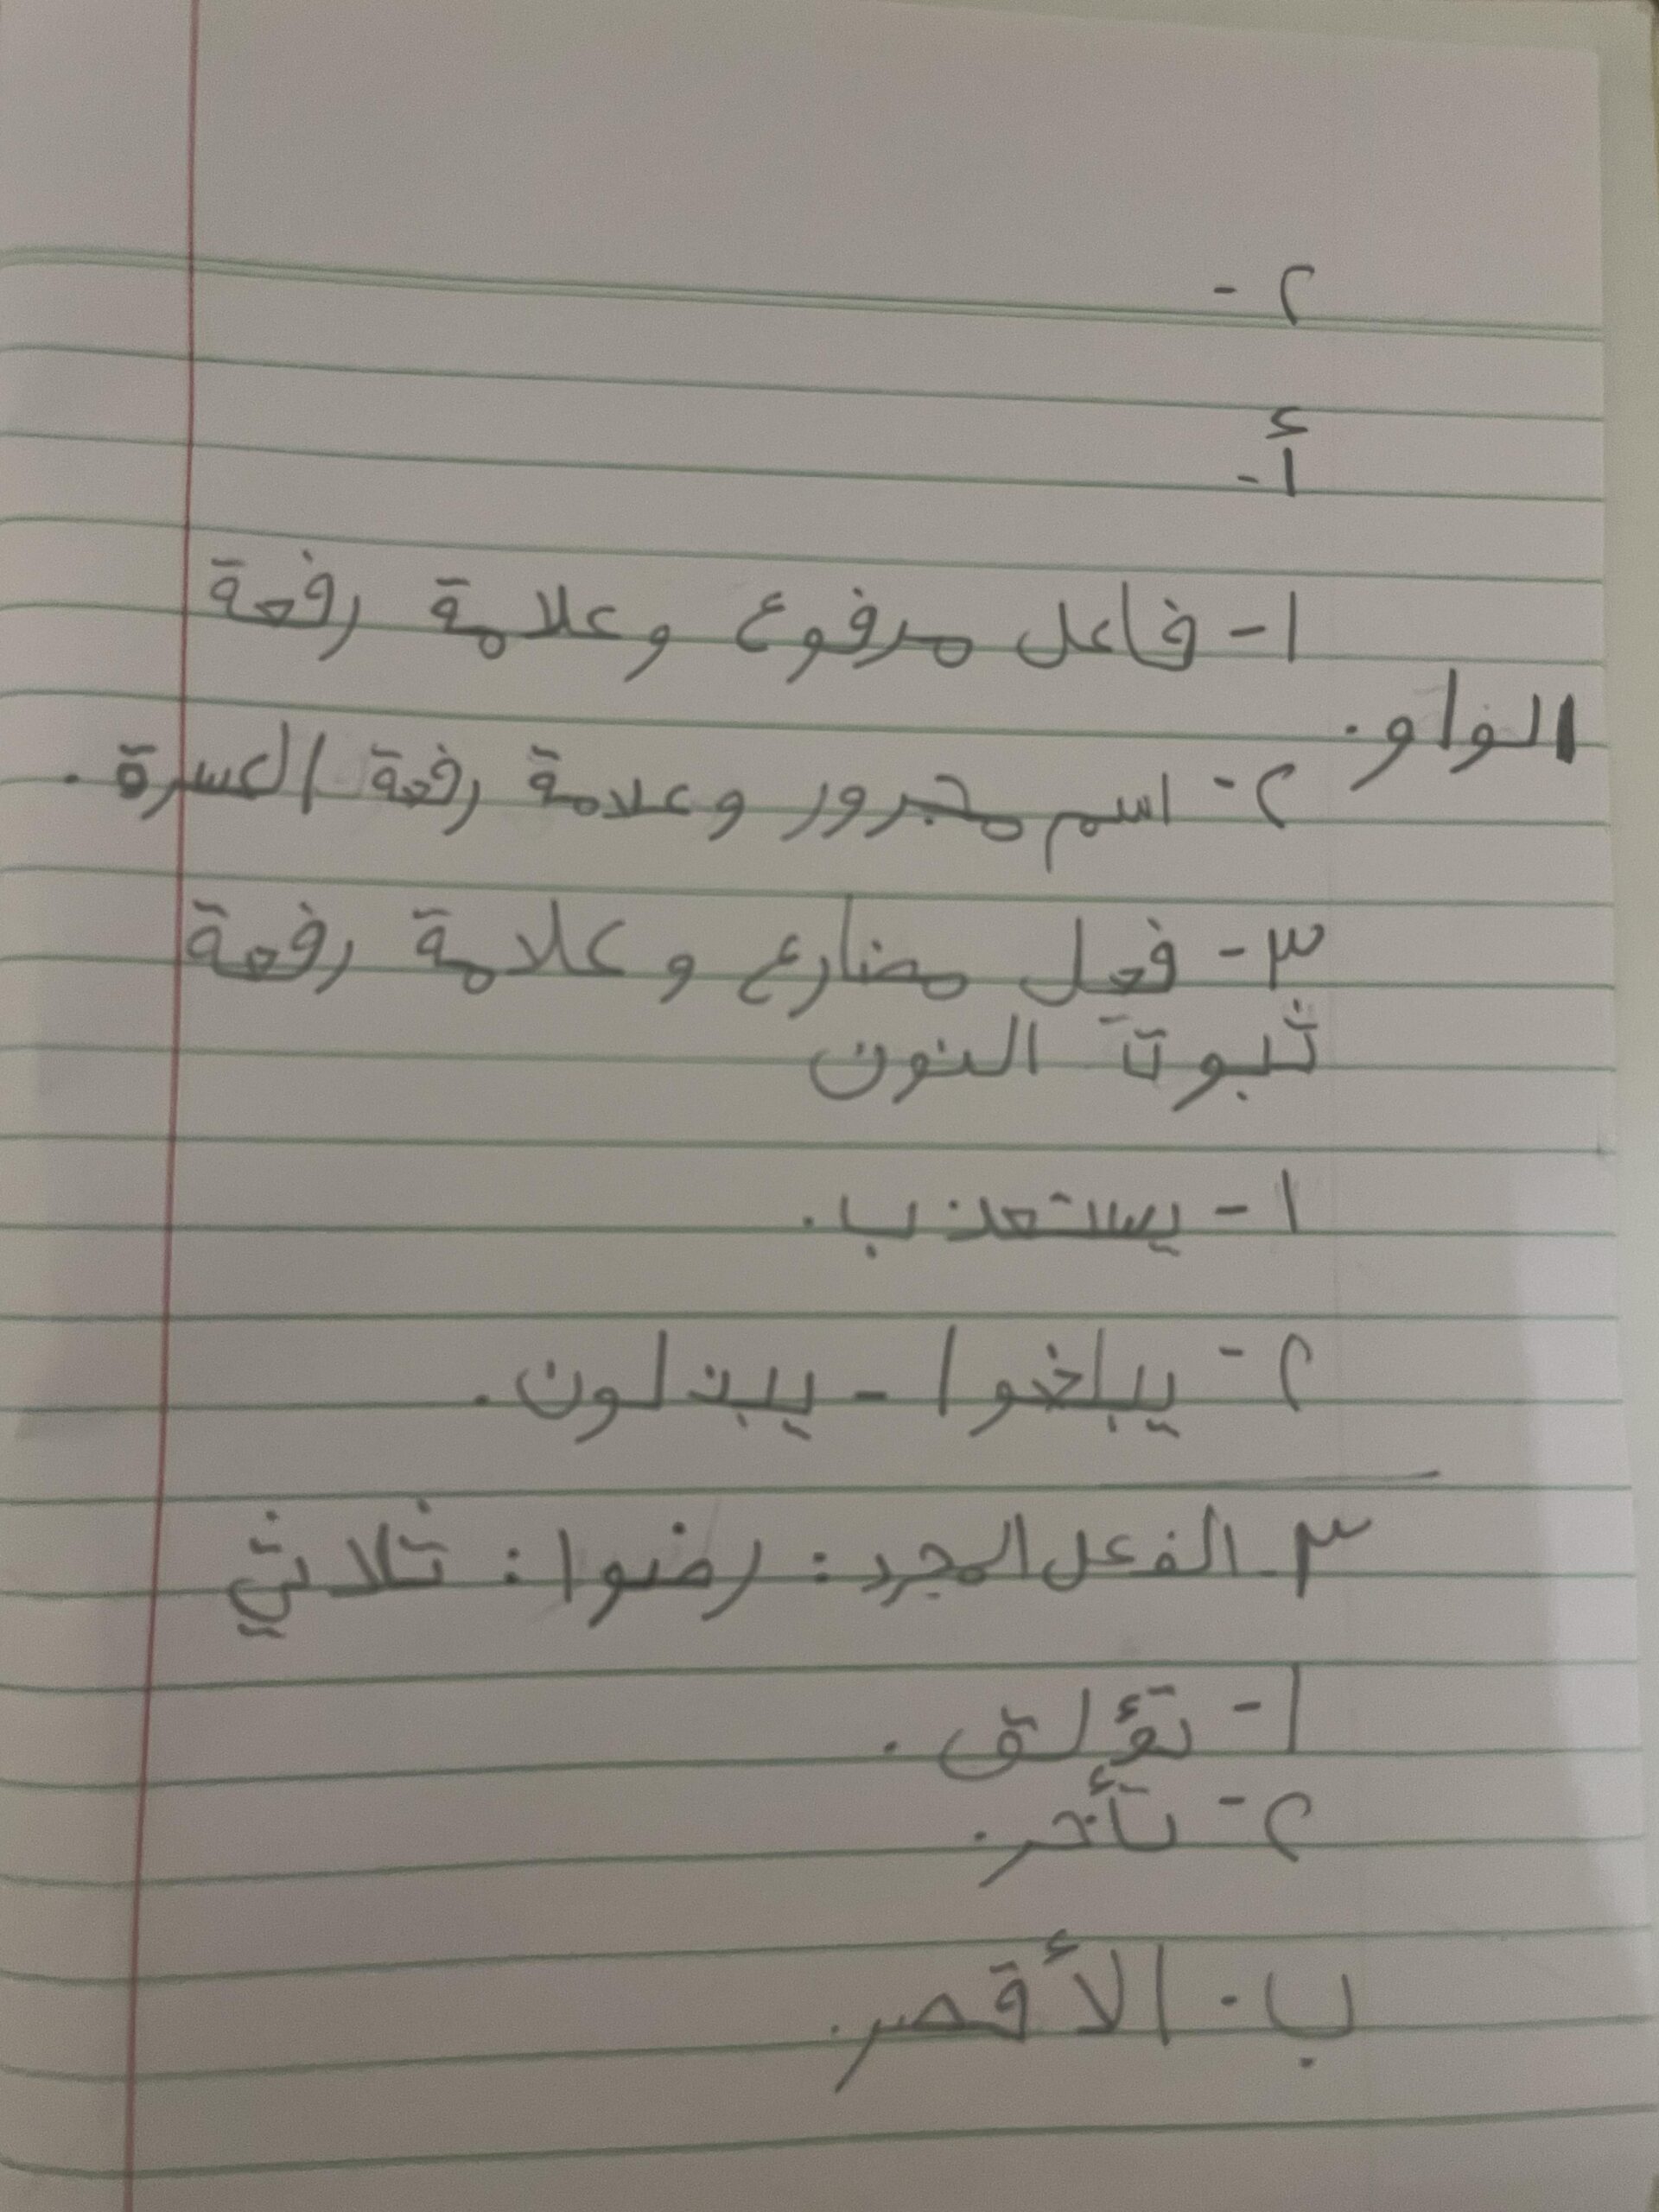 ٢ -
أ -
١ - فاعل مرفوع وعلامة رفعة
الواو.
٢ - اسم مجرور وعلامة رفعة الكسرة.
٣ - فعل مضارع وعلامة رفعة
ثبوت النون
١ - يستعذب.
٢ - يبلغوا - يبذلون.
٣ - الفعل المجرد : رضوا : ثلاثي
١ - تؤلق.
٢ - تأخر.
ب - الأقصر.